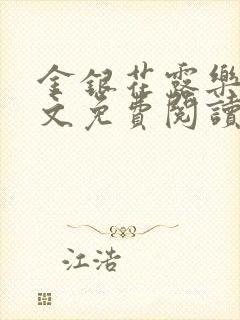 金銀花露樂
文免費閱讀
江浩